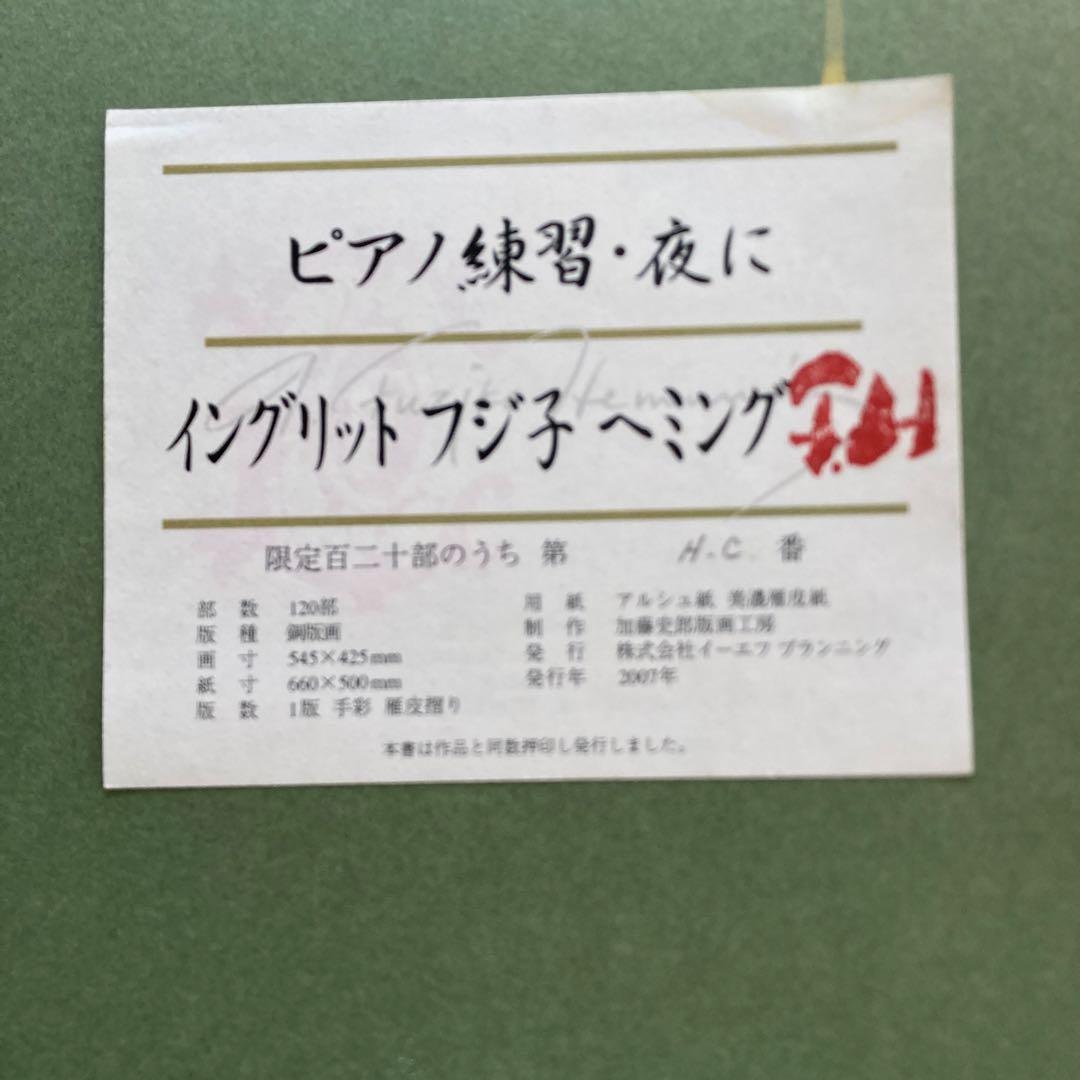 ピアノ練習・夜に
Fuzjko Hemming
イングリット フジ子 ヘミング
限定百二十部のうち 第 H.C. 番
部数 120部
版種 銅版画
画寸 545×425mm
紙寸 660×500mm
版数 1版 手彩 雁皮摺り
用紙 アルシュ紙 美濃雁皮紙
制作 加藤史郎版画工房
発行 株式会社イーエフ プランニング
発行年 2007年
本書は作品と同数押印し発行しました。